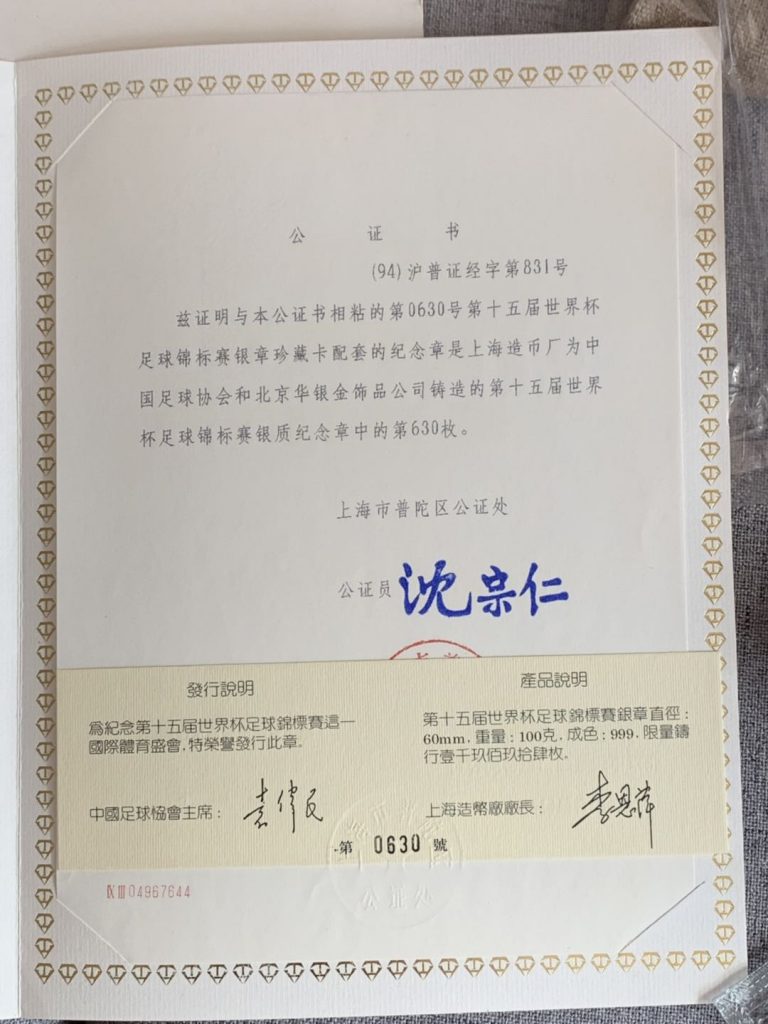 公 证 书
(94)沪普证经字第831号
兹证明与本公证书相粘的第0630号第十五届世界杯
足球锦标赛银章珍藏卡配套的纪念章是上海造币厂为中
国足球协会和北京华银金饰品公司铸造的第十五届世界
杯足球锦标赛银质纪念章中的第630枚。
上海市普陀区公证处
公证员 沈宗仁
發行説明
爲紀念第十五届世界杯足球錦標賽這一
國際體育盛會,特榮譽發行此章。
中國足球協會主席: 袁偉民
產品説明
第十五届世界杯足球錦標賽銀章直徑:
60mm,重量:100克,成色:999,限量鑄
行壹千玖佰玖拾肆枚。
上海造幣廠廠長: 李思萍
第 0630 號
公证处
ⅨⅢ04967644